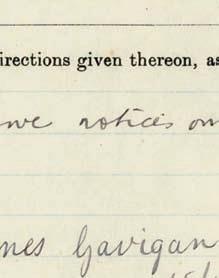 irections given thereon, as
we notices on
nes Gavigan